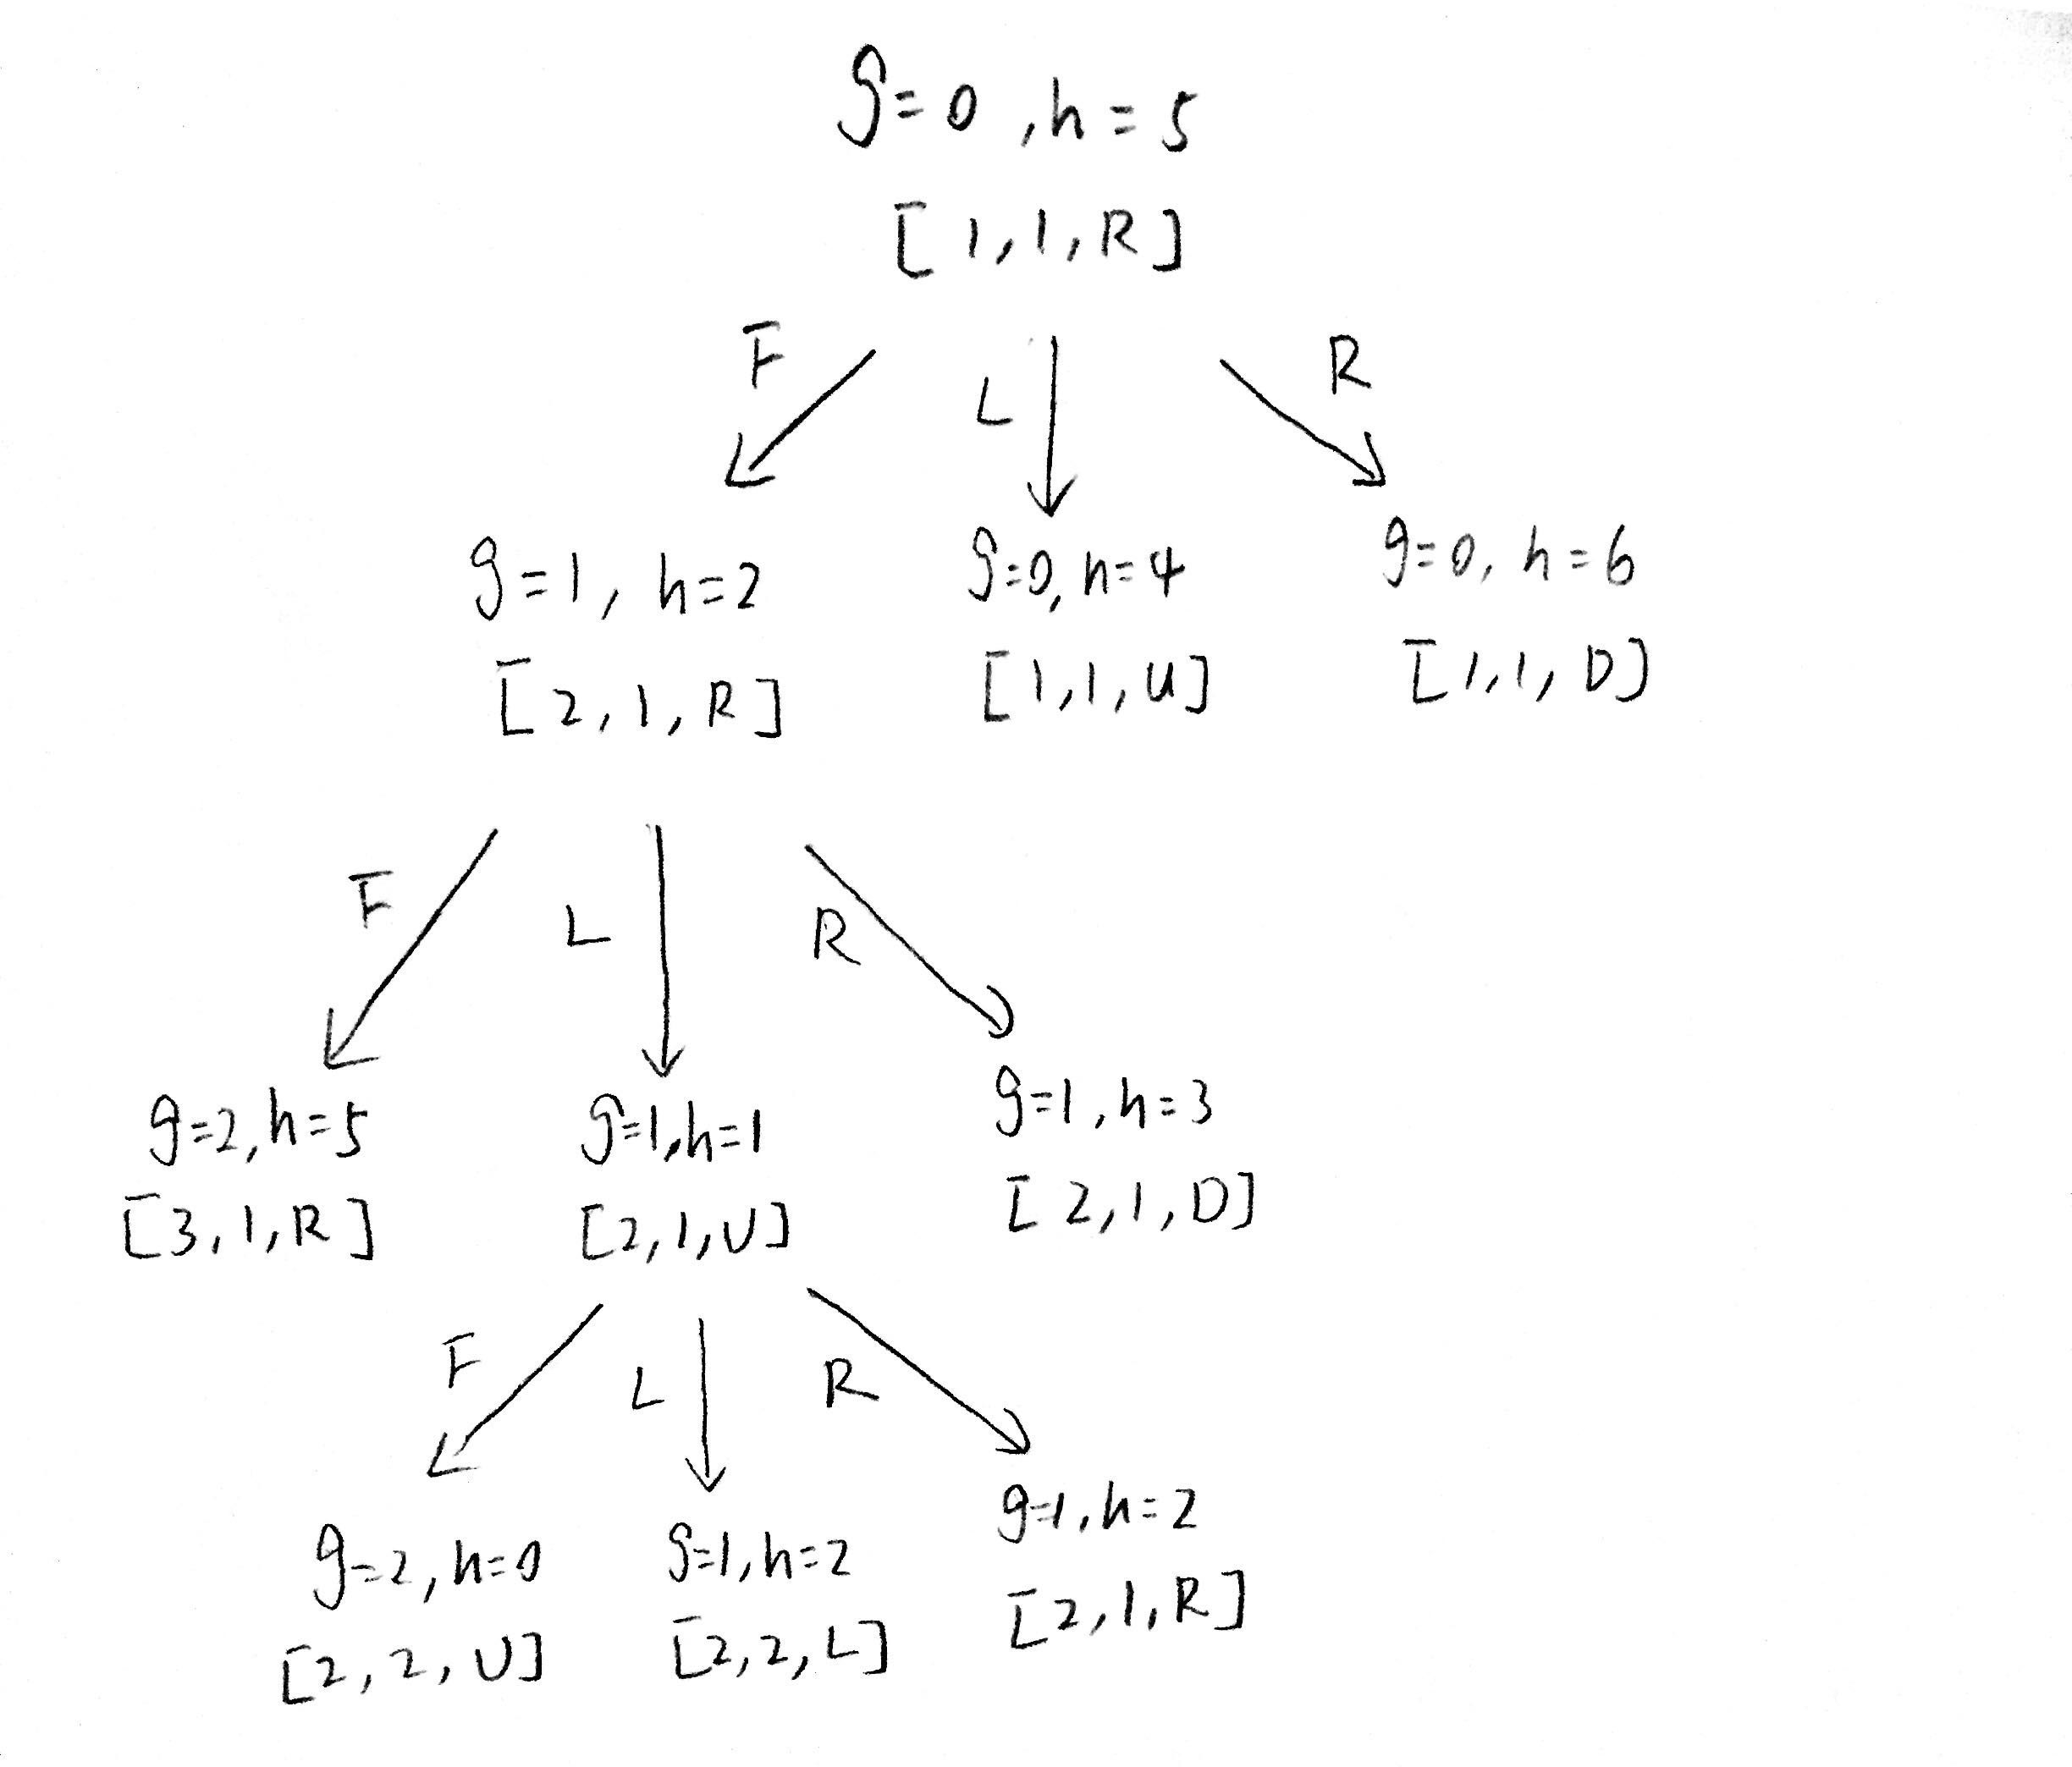 g=0, h=5
[1,1,R]
F L R
g=1, h=2
[2,1,R]
g=0, h=4
[1,1,U]
g=0, h=6
[1,1,D]
F L R
g=2, h=5
[3,1,R]
g=1, h=1
[2,1,U]
g=1, h=3
[2,1,D]
F L R
g=2, h=0
[2,2,U]
g=1, h=2
[2,2,L]
g=1, h=2
[2,1,R]